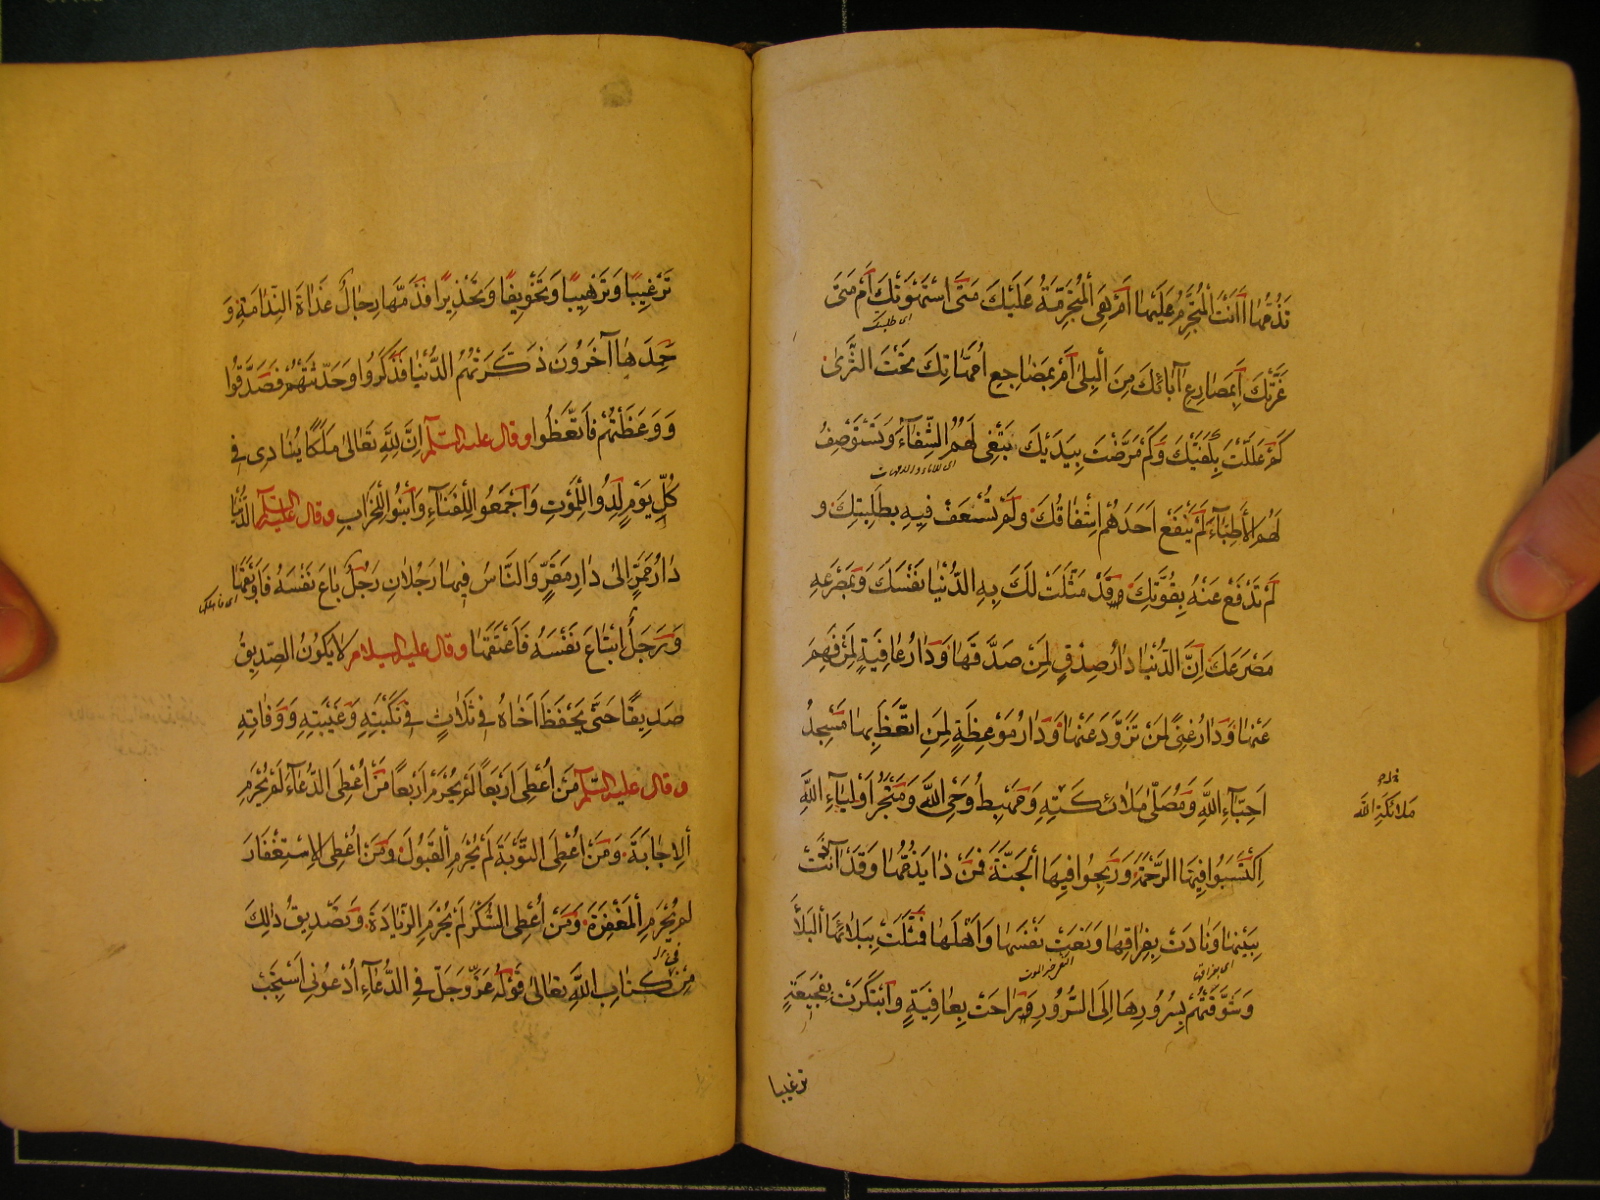 تَذُمُّهَا أَأَنْتَ الْمُتَجَرِّمُ عَلَيْهَا أَمْ هِيَ الْمُتَجَرِّمَةُ عَلَيْكَ مَتَى اسْتَهْوَتْكَ أَمْ مَتَى
غَرَّتْكَ أَبِمَصَارِعِ آبَائِكَ مِنَ الْبِلَى أَمْ بِمَضَاجِعِ أُمَّهَاتِكَ تَحْتَ الثَّرَى
كَمْ عَلَّلْتَ بِكَفَّيْكَ وَكَمْ مَرَّضْتَ بِيَدَيْكَ تَبْغِي لَهُمُ الشِّفَاءَ وَتَسْتَوْصِفُ
لَهُمُ الْأَطِبَّاءَ لَمْ يَنْفَعْ أَحَدَهُمْ إِشْفَاقُكَ وَلَمْ تُسْعَفْ فِيهِ بِطَلِبَتِكَ وَ
لَمْ تَدْفَعْ عَنْهُ بِقُوَّتِكَ وَقَدْ مَثَّلَتْ لَكَ بِهِ الدُّنْيَا نَفْسَكَ وَبِمَصْرَعِهِ
مَصْرَعَكَ إِنَّ الدُّنْيَا دَارُ صِدْقٍ لِمَنْ صَدَقَهَا وَدَارُ عَافِيَةٍ لِمَنْ فَهِمَ
عَنْهَا وَدَارُ غِنًى لِمَنْ تَزَوَّدَ عَنْهَا وَدَارُ مَوْعِظَةٍ لِمَنِ اتَّعَظَ بِهَا مَسْجِدُ
أَحِبَّاءِ اللَّهِ وَمُصَلَّى مَلَائِكَتِهِ وَمَهْبِطُ وَحْيِ اللَّهِ وَمَتْجَرُ أَوْلِيَاءِ اللَّهِ
مَلَائِكَةِ اللَّهِ
اكْتَسَبُوا فِيهَا الرَّحْمَةَ وَرَبِحُوا فِيهَا الْجَنَّةَ فَمَنْ ذَا يَذُمُّهَا وَقَدْ آذَنَتْ
بِبَيْنِهَا وَنَادَتْ بِفِرَاقِهَا وَنَعَتْ نَفْسَهَا وَأَهْلَهَا فَمَثَّلَتْ بِبَلَائِهَا الْبَلَاءَ
وَشَوَّقَتْهُمْ بِسُرُورِهَا إِلَى السُّرُورِ وَرَاحَتْ بِعَافِيَةٍ وَابْتَكَرَتْ بِفَجِيعَةٍ
ترغيبا
تَرْغِيبًا وَتَرْهِيبًا وَتَخْوِيفًا وَتَحْذِيرًا فَذَمَّهَا رِجَالٌ غَدَاةَ النَّدَامَةِ وَ
حَمِدَهَا آخَرُونَ ذَكَّرَتْهُمُ الدُّنْيَا فَذَكَرُوا وَحَدَّثَتْهُمْ فَصَدَّقُوا
وَوَعَظَتْهُمْ فَاتَّعَظُوا وقال عليه السّلام إِنَّ لِلَّهِ تَعَالَى مَلَكًا يُنَادِي فِي
كُلِّ يَوْمٍ لِدُوا لِلْمَوْتِ وَاجْمَعُوا لِلْفَنَاءِ وَابْنُوا لِلْخَرَابِ وقال عليه السّلام الدُّنْيَا
دَارُ مَمَرٍّ إِلَى دَارِ مَقَرٍّ وَالنَّاسُ فِيهَا رَجُلَانِ رَجُلٌ بَاعَ نَفْسَهُ فَأَوْبَقَهَا
اى اهلكها
وَرَجُلٌ ابْتَاعَ نَفْسَهُ فَأَعْتَقَهَا وقال عليه السلام لَا يَكُونُ الصَّدِيقُ
صَدِيقًا حَتَّى يَحْفَظَ أَخَاهُ فِي ثَلَاثٍ فِي نَكْبَتِهِ وَغَيْبَتِهِ وَوَفَاتِهِ
وقال عليه السّلام مَنْ أُعْطِيَ أَرْبَعًا لَمْ يُحْرَمْ أَرْبَعًا مَنْ أُعْطِيَ الدُّعَاءَ لَمْ يُحْرَمِ
الْإِجَابَةَ وَمَنْ أُعْطِيَ التَّوْبَةَ لَمْ يُحْرَمِ الْقَبُولَ وَمَنْ أُعْطِيَ الْإِسْتِغْفَارَ
لَمْ يُحْرَمِ الْمَغْفِرَةَ وَمَنْ أُعْطِيَ الشُّكْرَ لَمْ يُحْرَمِ الزِّيَادَةَ وَتَصْدِيقُ ذَلِكَ
مِنْ كِتَابِ اللَّهِ تَعَالَى قَوْلُهُ عَزَّ وَجَلَّ فِي الدُّعَاءِ أُدْعُونِي أَسْتَجِبْ